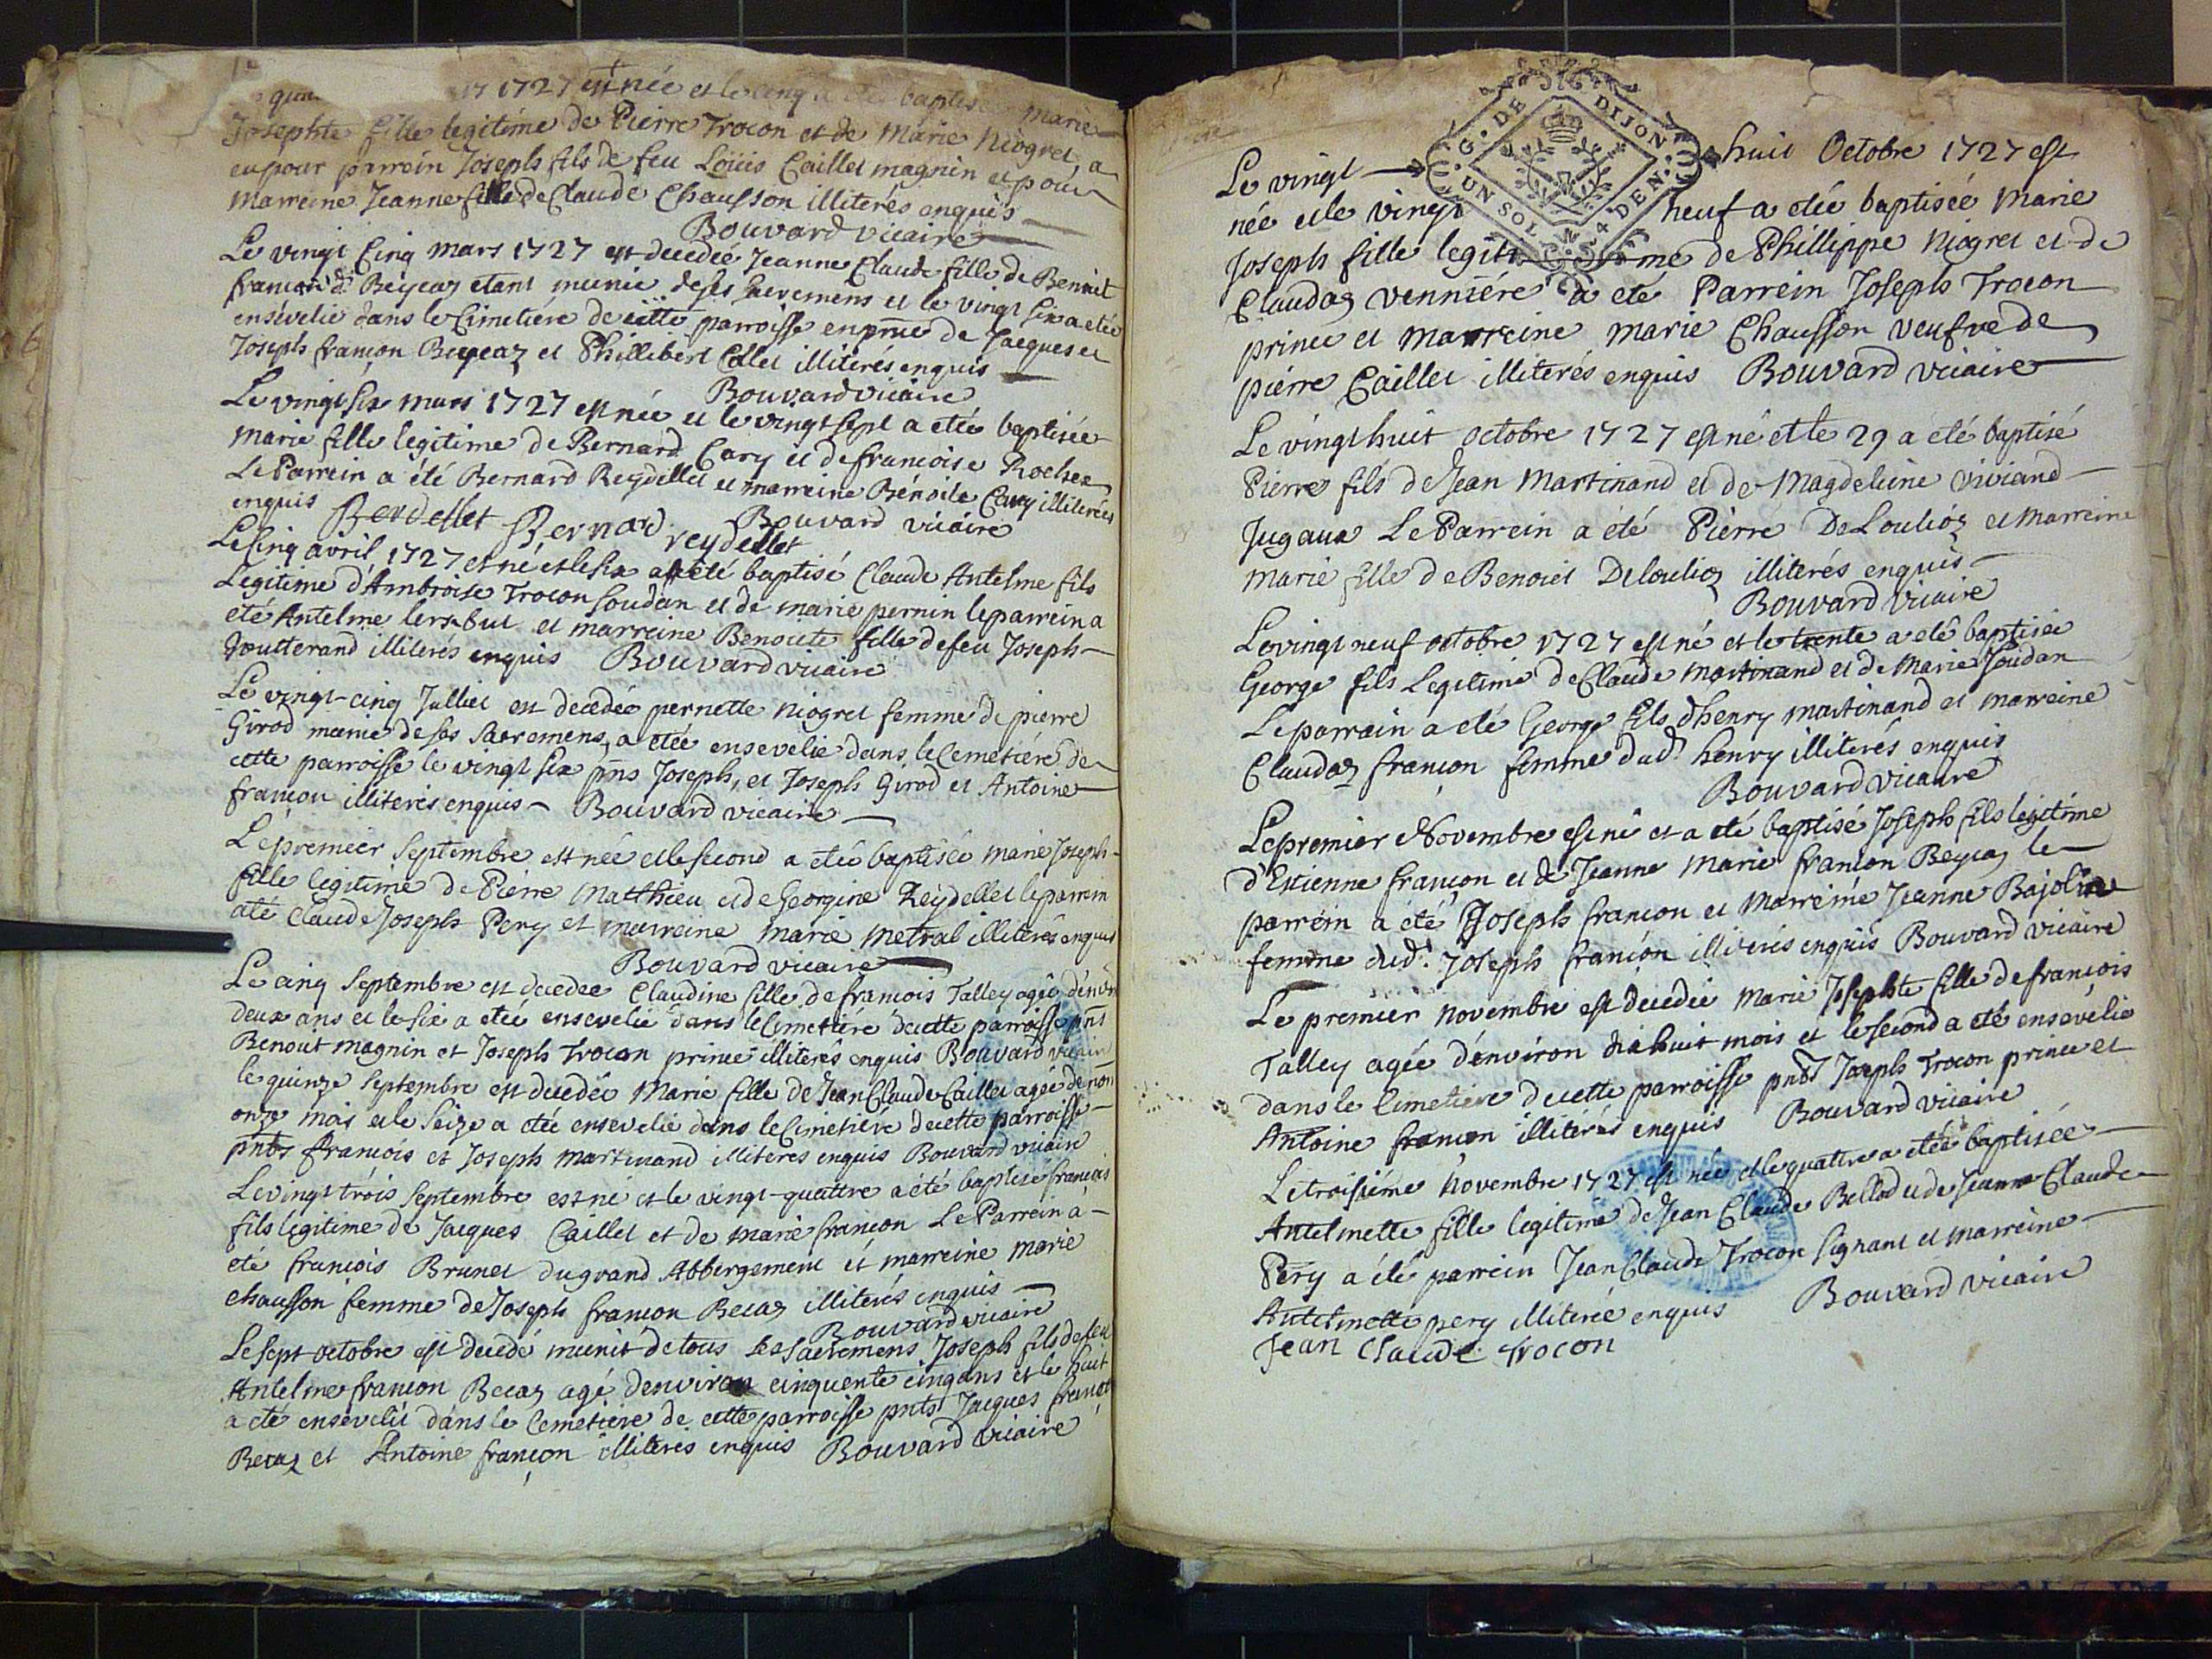 17 1727 est née et le cinq a été baptisée Marie
Josephte fille legitime de Pierre Trocon et de Marie Niogret, a
eu pour parrein Joseph fils de feu Loüis Caillet magnin et pour
Marreine Jeanne fille de Claude Chausson illiterés enquis
Bouvard vicaire
Le vingt Cinq Mars 1727 est decedée Jeanne Claude fille de Benoit
françon dt Beycaz etant munie de ses sacremens et le vingt six a etée
ensevelie dans le Cimetiére de cette parroisse en pnce de Jacques et
Joseph françon Beycaz et Phillibert Collet illiterés enquis
Bouvard vicaire
Le vingt six mars 1727 est née et le vingt sept a etée baptisée
Marie fille legitime de Bernard Cary et de francoise Rochex
Le Parrein a été Bernard Reydellet et marreine Bénoite Cary illiterés
enquis Berdellet Bernard reydellet Bouvard vicaire
Le Cinq avril 1727 est né et le six a été baptisé Claude Antelme fils
Legitime d'Ambroise Trocon Soudan et de marie pernin le parrein a
eté Antelme lerabut et marreine Benoite fille de feu Joseph
Joutterand illiterés enquis Bouvard vicaire
Le vingt-cinq Julliet est decedée pernette Niogret femme de pierre
Girod munie de ses Sacremens, a etée ensevelie dans le Cemetiére de
cette parroisse le vingt six pns Joseph, et Joseph Girod et Antoine
françon illiterés enquis Bouvard vicaire
Le premier Septembre est née et le second a etée baptisée marie Joseph
fille legitime de Piérre Matthieu et de Georgine Reydellet le parrein
a été Claude Joseph Pery et marreine Marie Metral illiterés enquis
Bouvard vicaire
Le cinq Septembre est decedée Claudine fille de francois Talley agée d'envn
deux ans et le six a etée ensevelie dans le Cimetiére de cette parroisse pns
Benoit magnin et Joseph Trocon prince illiterés enquis Bouvard vicaire
le quinze Septembre est decedée Marie fille de Jean Claude Caillet agée d'environ
onze mois et le Seize a eté ensevelie dans le Cimetiére de cette parroisse
pnts francois et Joseph Martinand illiterés enquis Bouvard vicaire
Le vingt trois Septembre est né et le vingt-quattre a été baptisé françois
fils legitime de Jacques Caillet et de Marie françon Le Parrein a
eté francois Brunet du grand Abbergement et marreine Marie
chausson femme de Joseph françon Becaz illiterés enquis
Bouvard vicaire
Le sept octobre est decedé munit de tous les Sacremens Joseph fils de feu
Antelme françon Becaz agé denviron cinquente cinq ans et le huit
a eté enseveli dans le Cemetiére de cette parroisse pnts Jacques françon
Becaz et Antoine françon illiterés enquis Bouvard vicaire
G. DE DIJON
UN SOL 4 DEN.
Le vingt huit Octobre 1727 est
née et le vingt neuf a etée baptisée Marie
Joseph fille legitime de Phillippe Niogret et de
Claudaz Vennière a eté Parrein Joseph Trocon
prince et marreine marie Chausson veufve de
piérre Caillet illiterés enquis Bouvard vicaire
Le vingt huit octobre 1727 est né et le 29 a été baptisé
Pierre fils de Jean Martinand et de Magdeleine Viviand
Jugaux Le Parrein a été Pièrre De Louliòz et Marreine
Marie fille de Benoiet Delouliòz illiterés enquis
Bouvard vicaire
Le vingt neuf octobre 1727 est né et le trente a eté baptisée
George fils Legitime de Claude Martinand et de Marie Soudan
Le parrain a eté George fils dhenry martinand et marreine
Claudaz françon femme dud. henry illiterés enquis
Bouvard vicaire
Le premier Novembre est né et a eté baptisé Joseph fils legitime
d'Estienne françon et de Jeanne Marie françon Beycaz le
parrein a été Joseph françon et Marreine Jeanne Bajolin
femme dud. Joseph françon illiterés enquis Bouvard vicaire
Le premier novembre est decedée Marie Josephte fille de françois
Talley agée d'environ dix huit mois et le second a eté ensevelie
dans le Cimetiére de cette parroisse pnts Joseph Trocon prince et
Antoine françon illitérés enquis Bouvard vicaire
Le troisiéme Novembre 1727 est née et le quattre a etée baptisée
Antelmette fille legitime de Jean Claude Bellod et de Jeanne Claude
Pery a été parrein Jean Claude Trocon signant et marreine
Antelmette pery illiterée enquis Bouvard vicaire
Jean Claude trocon